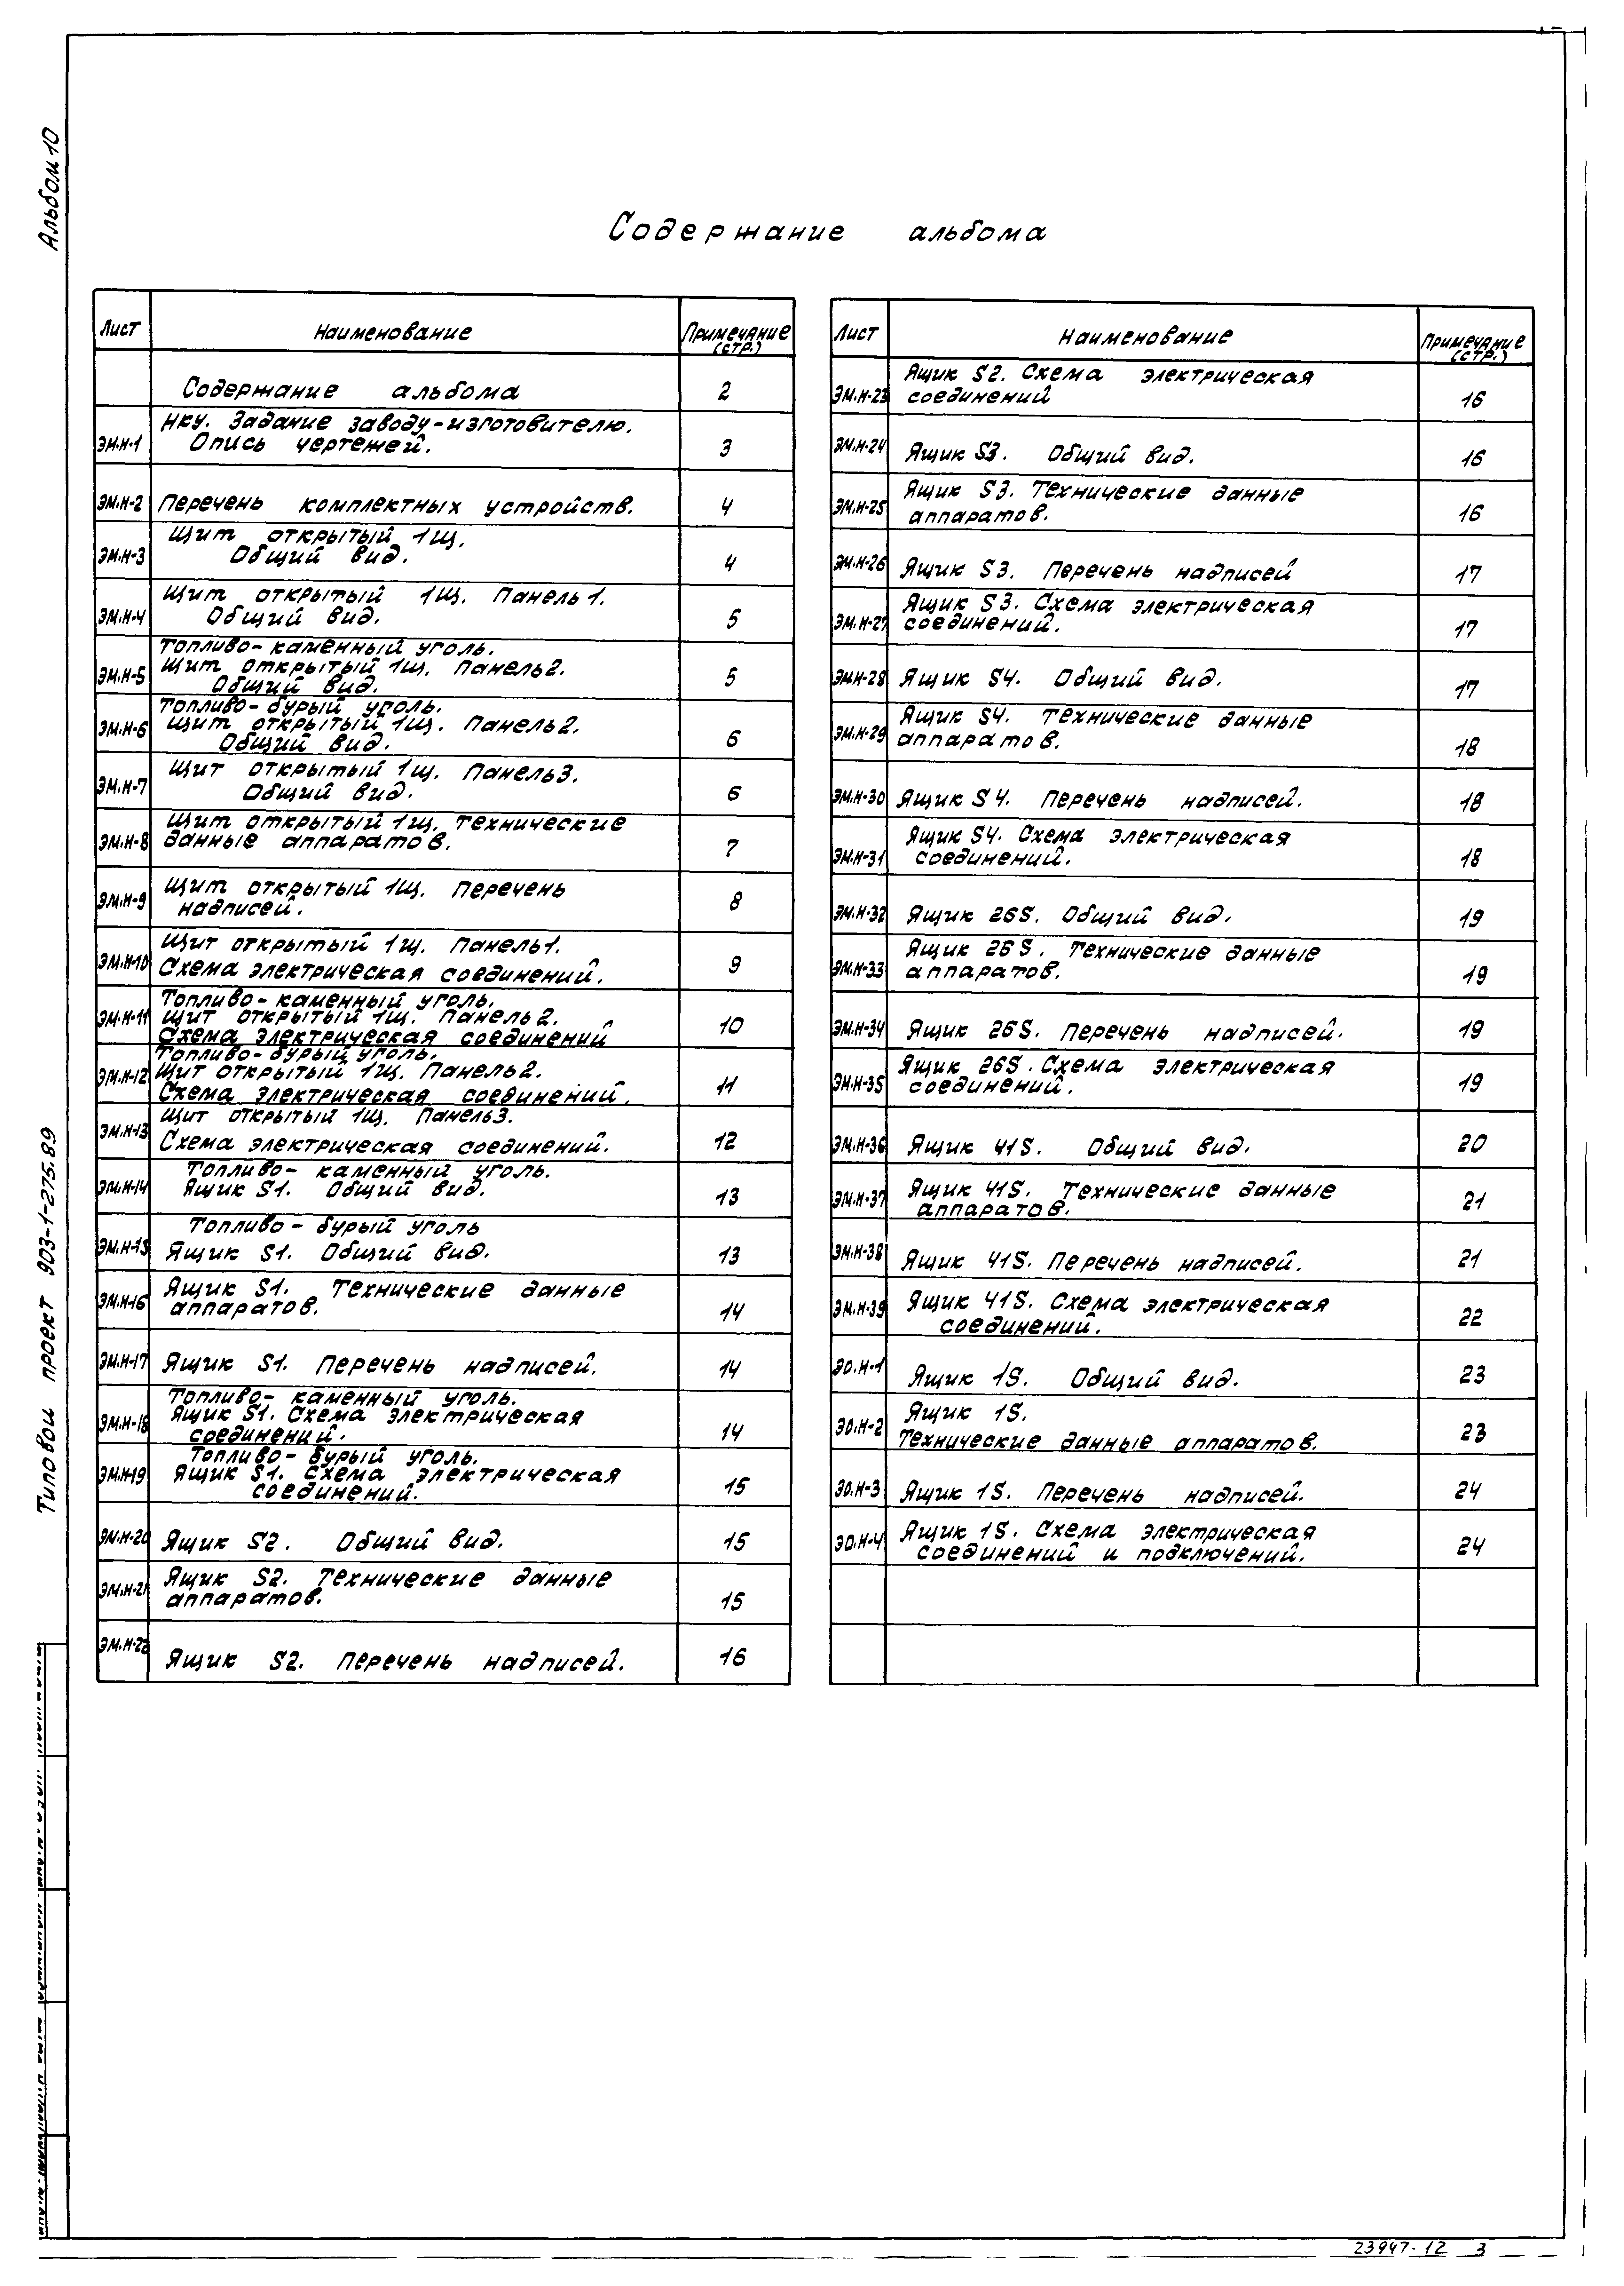 Альбом 10
Содержание альбома
Лист Наименование Примечание (стр.)
Содержание альбома 2
НКУ. Задание заводу-изготовителю.
ЭМ.Н-1 Опись чертежей. 3
ЭМ.Н-2 Перечень комплектных устройств. 4
Щит открытый 1Щ.
ЭМ.Н-3 Общий вид. 4
Щит открытый 1Щ. Панель 1.
ЭМ.Н-4 Общий вид. 5
Топливо-каменный уголь.
ЭМ.Н-5 Щит открытый 1Щ. Панель 2. 5
Общий вид.
Топливо-бурый уголь.
ЭМ.Н-6 Щит открытый 1Щ. Панель 2. 6
Общий вид.
Щит открытый 1Щ. Панель 3.
ЭМ.Н-7 Общий вид. 6
Щит открытый 1Щ. Технические
ЭМ.Н-8 данные аппаратов. 7
Щит открытый 1Щ. Перечень
ЭМ.Н-9 надписей. 8
Щит открытый 1Щ. Панель 1.
ЭМ.Н-10 Схема электрическая соединений. 9
Топливо-каменный уголь.
ЭМ.Н-11 Щит открытый 1Щ. Панель 2. 10
Схема электрическая соединений
Топливо-бурый уголь.
ЭМ.Н-12 Щит открытый 1Щ. Панель 2. 11
Схема электрическая соединений.
Щит открытый 1Щ. Панель 3.
ЭМ.Н-13 Схема электрическая соединений. 12
Топливо- каменный уголь.
ЭМ.Н-14 Ящик S1. Общий вид. 13
Топливо- бурый уголь
ЭМ.Н-15 Ящик S1. Общий вид. 13
Ящик S1. Технические данные
ЭМ.Н-16 аппаратов. 14
ЭМ.Н-17 Ящик S1. Перечень надписей. 14
Топливо- каменный уголь.
ЭМ.Н-18 Ящик S1. Схема электрическая 14
соединений.
Топливо- бурый уголь.
ЭМ.Н-19 Ящик S1. Схема электрическая 15
соединений.
ЭМ.Н-20 Ящик S2. Общий вид. 15
Ящик S2. Технические данные
ЭМ.Н-21 аппаратов. 15
ЭМ.Н-22 Ящик S2. Перечень надписей. 16
Лист Наименование Примечание (стр.)
Ящик S2. Схема электрическая
ЭМ.Н-23 соединений 16
ЭМ.Н-24 Ящик S3. Общий вид. 16
Ящик S3. Технические данные
ЭМ.Н-25 аппаратов. 16
ЭМ.Н-26 Ящик S3. Перечень надписей 17
Ящик S3. Схема электрическая
ЭМ.Н-27 соединений. 17
ЭМ.Н-28 Ящик S4. Общий вид. 17
Ящик S4. Технические данные
ЭМ.Н-29 аппаратов. 18
ЭМ.Н-30 Ящик S4. Перечень надписей. 18
Ящик S4. Схема электрическая
ЭМ.Н-31 соединений. 18
ЭМ.Н-32 Ящик 26S. Общий вид. 19
Ящик 26S. Технические данные
ЭМ.Н-33 аппаратов. 19
ЭМ.Н-34 Ящик 26S. Перечень надписей. 19
Ящик 26S. Схема электрическая
ЭМ.Н-35 соединений. 19
ЭМ.Н-36 Ящик 41S. Общий вид. 20
Ящик 41S. Технические данные
ЭМ.Н-37 аппаратов. 21
ЭМ.Н-38 Ящик 41S. Перечень надписей. 21
Ящик 41S. Схема электрическая
ЭМ.Н-39 соединений. 22
ЭО.Н-1 Ящик 1S. Общий вид. 23
Ящик 1S.
ЭО.Н-2 Технические данные аппаратов. 23
ЭО.Н-3 Ящик 1S. Перечень надписей. 24
Ящик 1S. Схема электрическая
ЭО.Н-4 соединений и подключений. 24
Типовой проект 903-1-275.89
23947-12 3